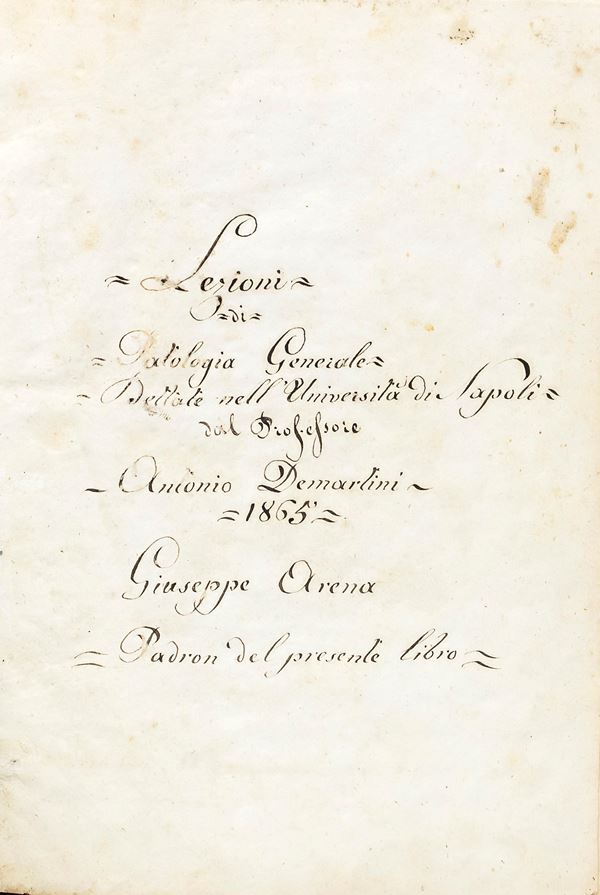 = Lezioni =
=di=
= Patologia Generale=
= Dettate nell'Università di Napoli =
dal Professore
- Antonio Demartini -
=1865=
Giuseppe Arena
= Padron del presente libro =